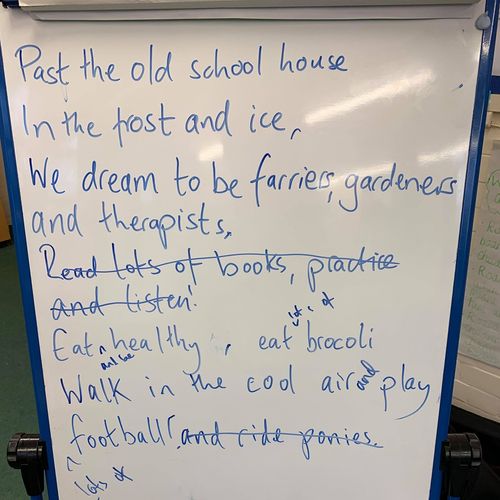 Past the old school house
In the frost and ice,
We dream to be farriers, gardeners
and therapists.
Read lots of books, practice
and listen!
Eat and be healthy, eat lots of brocoli
Walk in the cool air and play
lots of football! and ride ponies.